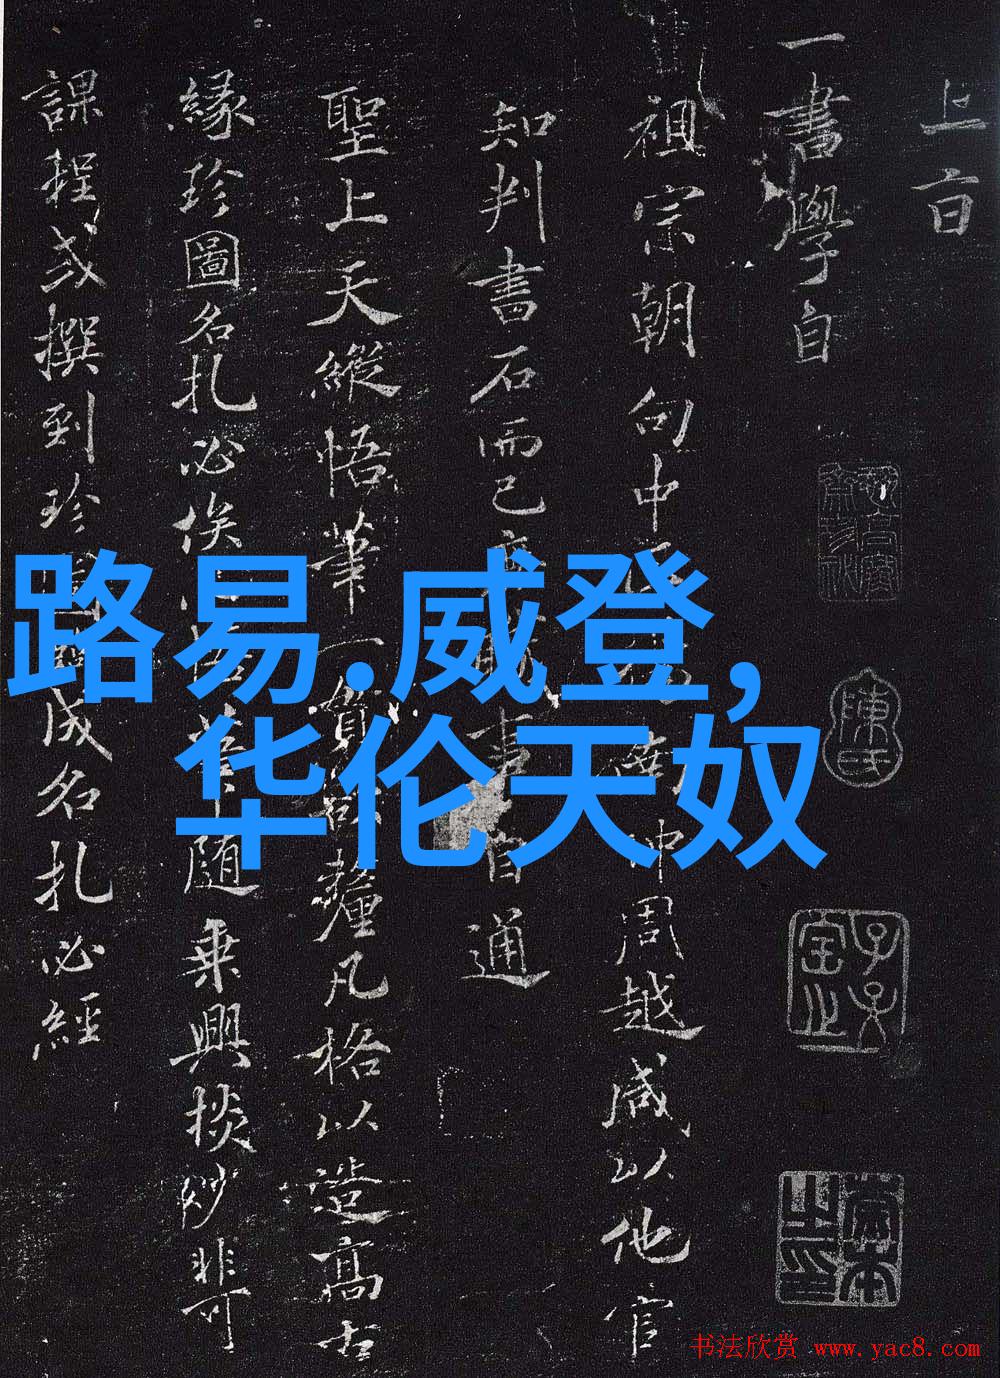 上
一書學自
祖宗朝句中仲周越咸以他官
知判書石而已事自通
聖上天縱悟筆一釐凡格以造高古
緣珍圖名札必俟隨乗興掞妙非可
課程或撰到珍成名札必經
路易.威登,
华伦天奴
陳氏
书法欣赏 www.yac8.com